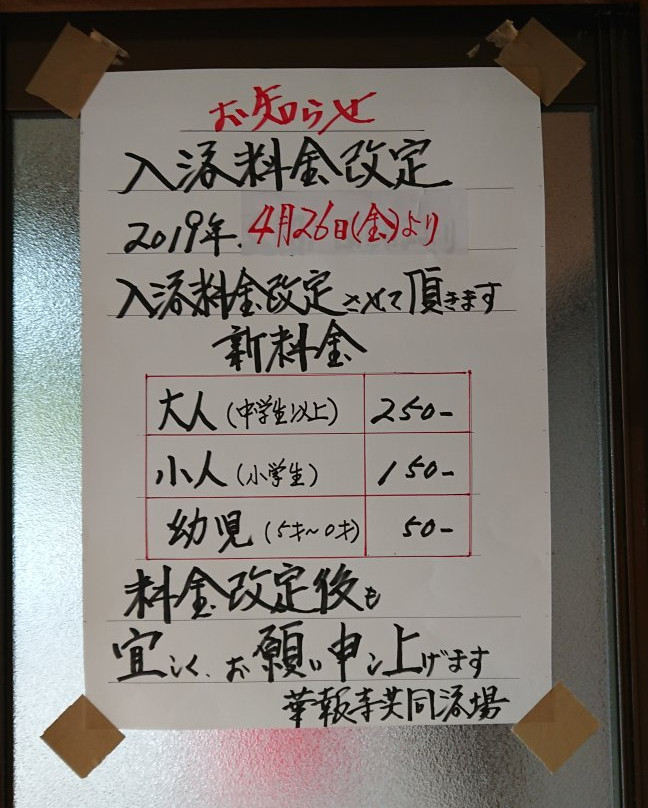 お知らせ
入浴料金改定
2019年.4月26日(金)より
入浴料金改定させて頂きます
新料金
大人(中学生以上) 250-
小人(小学生) 150-
幼児(5才~0才) 50-
料金改定後も
宜しく、お願い申し上げます
華報寺共同浴場